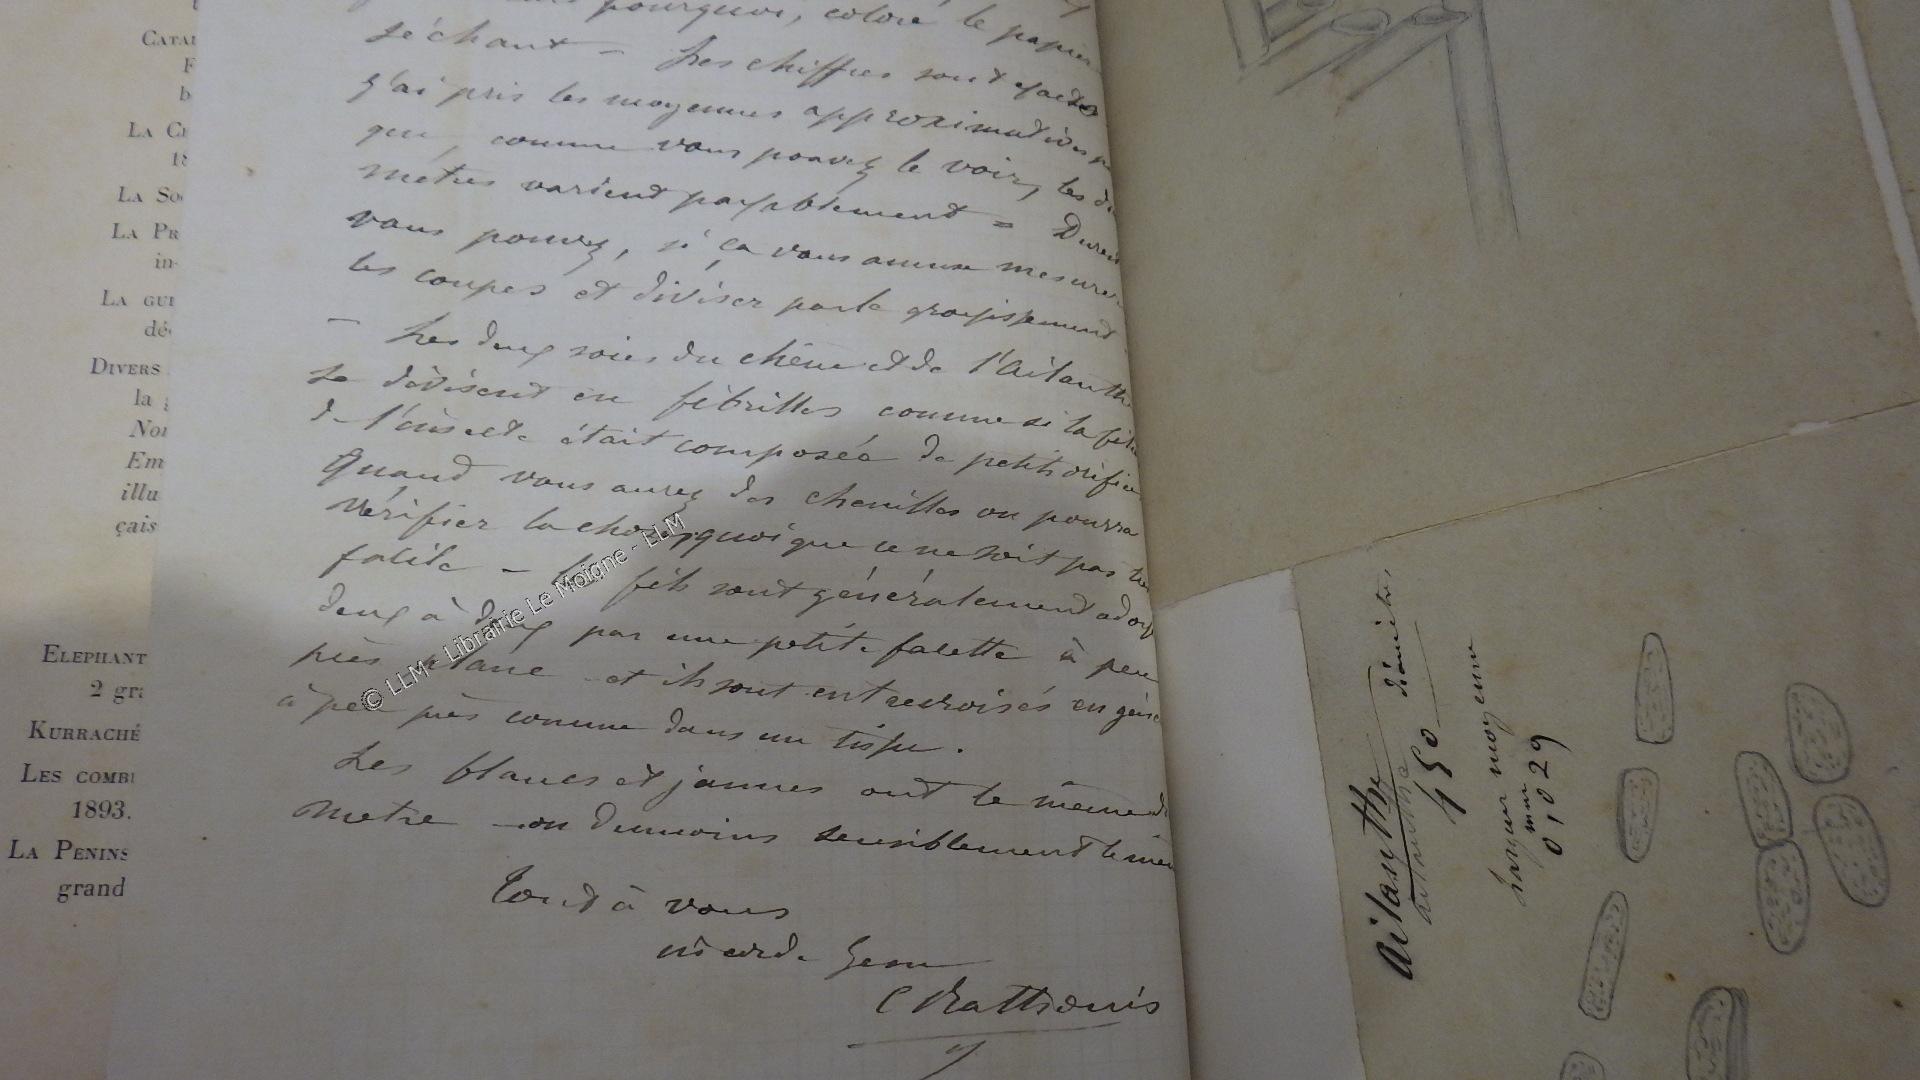 CATA
F
b
LA C
18
LA SO
LA PR
in-
LA GUE
déc
DIVERS
la g
Nor
Em
illu
çais
ELEPHANT
2 gra
KURRACHÉ
LES COMB
1893.
LA PENINS
grand
pourquoi, coloré le papier
séchant – Les chiffres sont exactes
j'ai pris les moyennes approximatives
que, comme vous pouvez le voir, les di
mètres varient passablement =
vous pouvez, si ça vous amuse mesurer
les coupes et diviser par le grossissement
– Les deux soies du chêne et de l'Ailanthe
se divisent en fibrilles comme si la fili
de l'insecte était composée de petits orifices
Quand vous aurez des chenilles on pourra
vérifier la chose, quoique ce ne soit pas
facile – Les fils sont généralement ados
deux à deux par une petite facette à peu
près plane et ils sont entrecroisés en géné
à peu près comme dans un tissu.
Les blancs et jaunes ont le même di
mètre – ou du moins sensiblement le mêm
Tout à vous
C Rathouis
© LLM - Librairie Le Moigne - LLM
Ailanthe
450 diamètres
largeur moyenne
mm
0,029